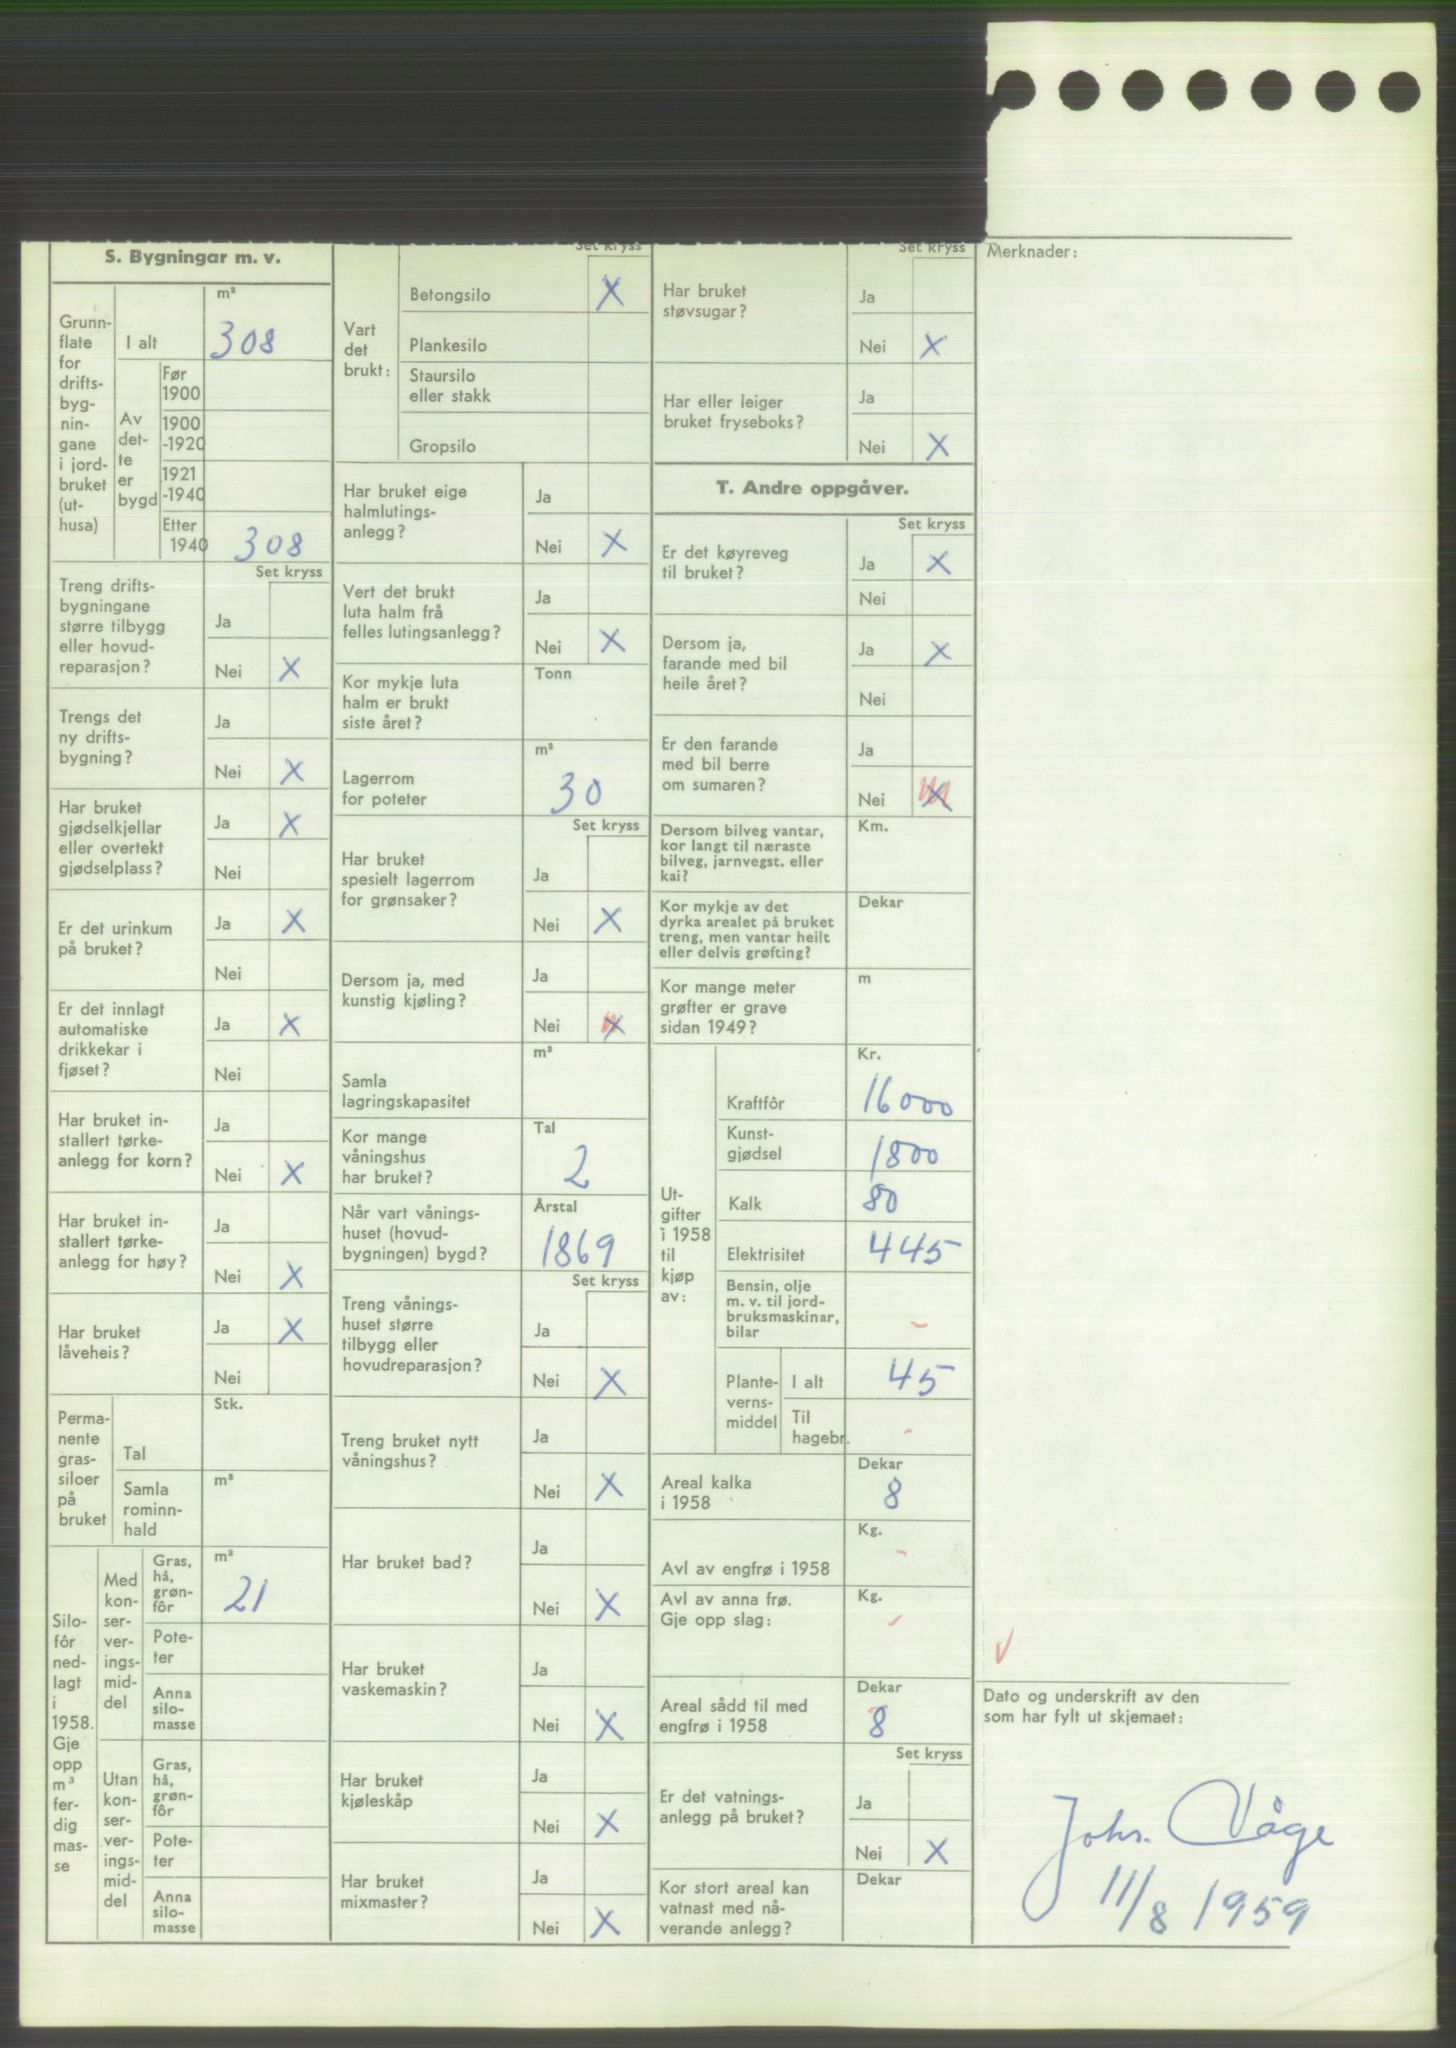 S. Bygningar m. v.
Grunn-
flate
for
drifts-
byg-
nin-
gane
i jord-
bruket
(ut-
husa)
m²
I alt 308
Av
det-
te
er
bygd
Før
1900
1900
-1920
1921
-1940
Etter
1940 308
Set kryss
Treng drifts-
bygningane
større tilbygg
eller hovud-
reparasjon?
Ja
Nei X
Trengs det
ny drifts-
bygning?
Ja
Nei X
Har bruket
gjødselkjellar
eller overtekt
gjødselplass?
Ja X
Nei
Er det urinkum
på bruket?
Ja X
Nei
Er det innlagt
automatiske
drikkekar i
fjøset?
Ja X
Nei
Har bruket in-
stallert tørke-
anlegg for korn?
Ja
Nei X
Har bruket in-
stallert tørke-
anlegg for høy?
Ja
Nei X
Har bruket
låveheis?
Ja X
Nei
Perma-
nente
gras-
siloer
på
bruket
Stk.
Tal
m³
Samla
rominn-
hald
Silo-
fôr
ned-
lagt
i
1958.
Gje
opp
m³
fer-
dig
mas-
se
Med
kon-
ser-
ver-
ings-
mid-
del
Gras,
hå,
grøn-
fôr
m³
21
Pote-
ter
Anna
silo-
masse
Utan
kon-
ser-
ver-
ings-
mid-
del
Gras,
hå,
grøn-
fôr
Pote-
ter
Anna
silo-
masse
Set kryss
Vart
det
brukt:
Betongsilo X
Plankesilo
Staursilo
eller stakk
Gropsilo
Har bruket eige
halmlutings-
anlegg?
Ja
Nei X
Vert det brukt
luta halm frå
felles lutingsanlegg?
Ja
Nei X
Kor mykje luta
halm er brukt
siste året?
Tonn
Lagerrom
for poteter
m³
30
Set kryss
Har bruket
spesielt lagerrom
for grønsaker?
Ja
Nei X
Dersom ja, med
kunstig kjøling?
Ja
Nei X
Samla
lagringskapasitet
m³
Kor mange
våningshus
har bruket?
Tal
2
Når vart vånings-
huset (hovud-
bygningen) bygd?
Årstal
1869
Set kryss
Treng vånings-
huset større
tilbygg eller
hovudreparasjon?
Ja
Nei X
Treng bruket nytt
våningshus?
Ja
Nei X
Har bruket bad?
Ja
Nei X
Har bruket
vaskemaskin?
Ja
Nei X
Har bruket
kjøleskåp
Ja
Nei X
Har bruket
mixmaster?
Ja
Nei X
Set kryss
Har bruket
støvsugar?
Ja
Nei X
Har eller leiger
bruket fryseboks?
Ja
Nei X
T. Andre oppgåver.
Set kryss
Er det køyreveg
til bruket?
Ja X
Nei
Dersom ja,
farande med bil
heile året?
Ja X
Nei
Er den farande
med bil berre
om sumaren?
Ja
Nei X
Dersom bilveg vantar,
kor langt til næraste
bilveg, jarnvegst. eller
kai?
Km.
Kor mykje av det
dyrka arealet på bruket
treng, men vantar heilt
eller delvis grøfting?
Dekar
Kor mange meter
grøfter er grave
sidan 1949?
m
Ut-
gifter
i 1958
til
kjøp
av:
Kr.
Kraftfôr 16000
Kunst-
gjødsel 1800
Kalk 80
Elektrisitet 445
Bensin, olje
m. v. til jord-
bruksmaskinar,
bilar -
Plante-
verns-
middel
I alt 45
Til
hagebr. -
Areal kalka
i 1958
Dekar
8
Avl av engfrø i 1958
Kg.
-
Avl av anna frø.
Gje opp slag:
Kg.
-
Areal sådd til med
engfrø i 1958
Dekar
8
Set kryss
Er det vatnings-
anlegg på bruket?
Ja
Nei X
Kor stort areal kan
vatnast med nå-
verande anlegg?
Dekar
Merknader:
Dato og underskrift av den
som har fylt ut skjemaet:
Johs. Våge
11/8 1959